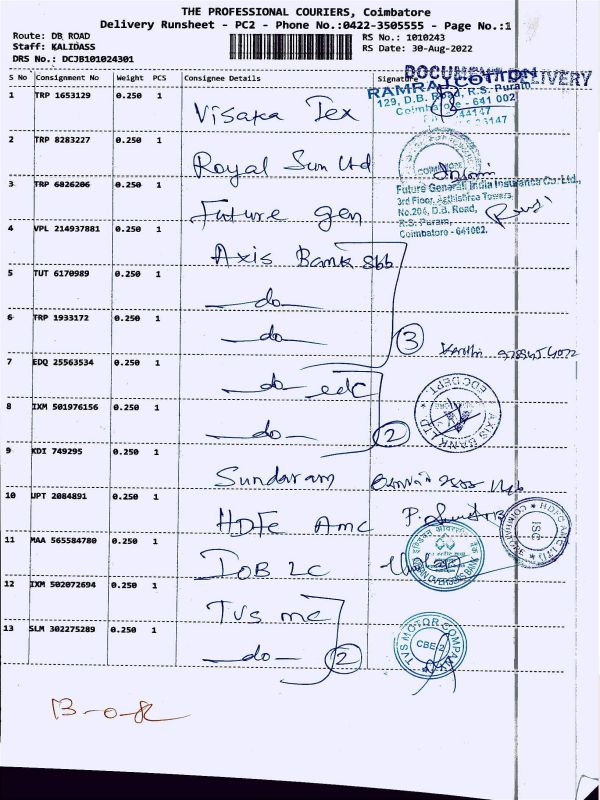 THE PROFESSIONAL COURIERS, Coimbatore
Delivery Runsheet - PC2 - Phone No.:0422-3505555 - Page No.:1
Route: DB ROAD
Staff: KALIDASS
DRS No.: DCJB101024301
RS No.: 1010243
RS Date: 30-Aug-2022
S No Consignment No Weight PCS Consignee Details Signature
DOCUMENT DELIVERY
RAMRAJ COTTON
129, D.B. Road, R.S. Puram,
Coimbatore - 641 002
1 TRP 1653129 0.250 1 Visaka Tex
2 TRP 8283227 0.250 1 Royal Sun Ltd
3 TRP 6826206 0.250 1 Future gen
Future Generali India Insurance Co. Ltd.,
3rd Floor, Agthishree Towers,
No.206, D.B. Road,
R.S. Puram,
Coimbatore - 641002.
4 VPL 214937881 0.250 1 Axis Bank Sbb
5 TUT 6170989 0.250 1 —do—
6 TRP 1933172 0.250 1 —do— 3
7 EDQ 25563534 0.250 1 —do— edc
8 IXM 501976156 0.250 1 —do— 2
EDC DEPT. AXIS BANK LTD
9 KDI 749295 0.250 1 Sundaram
10 UPT 2084891 0.250 1 HDFC Amc
HDFC AMC LTD ISC COIMBATORE
11 MAA 565584780 0.250 1 IOB LC
INDIAN OVERSEAS BANK
12 IXM 502072694 0.250 1 TVS mc
13 SLM 302275289 0.250 1 —do— 2
TVS MOTOR COMPANY CBE 2
13-0-R